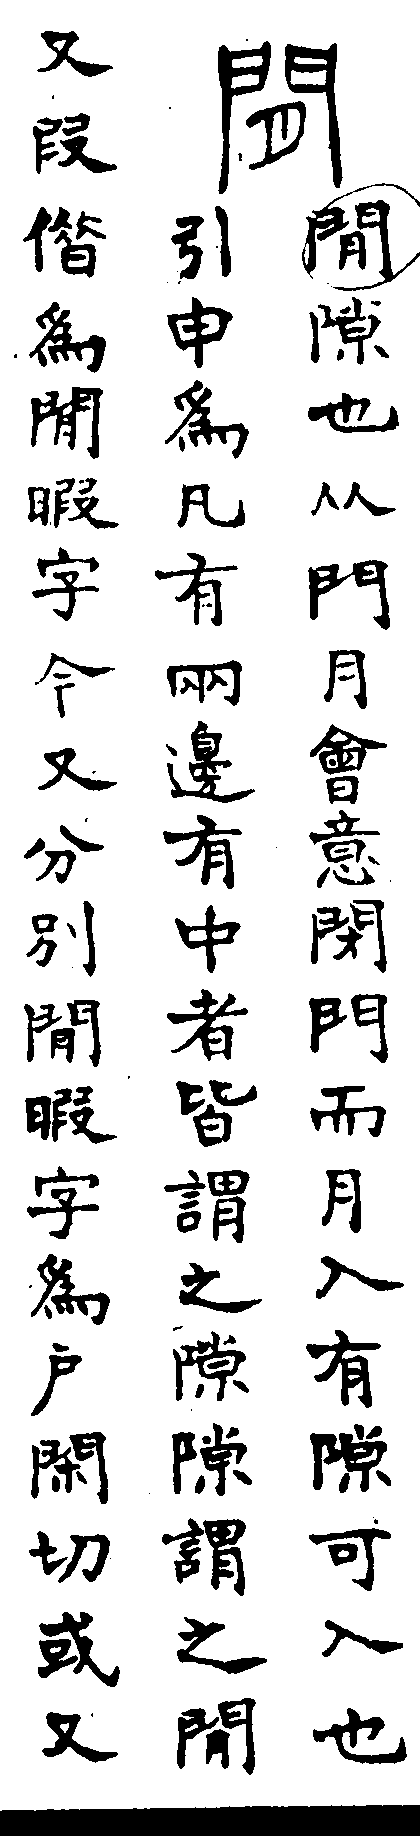 閒
閒隙也从門月會意閉門而月入有隙可入也
引申爲凡有兩邊有中者皆謂之隙隙謂之閒
又叚偺爲閒暇字今又分別閒暇字爲戶閑切或又